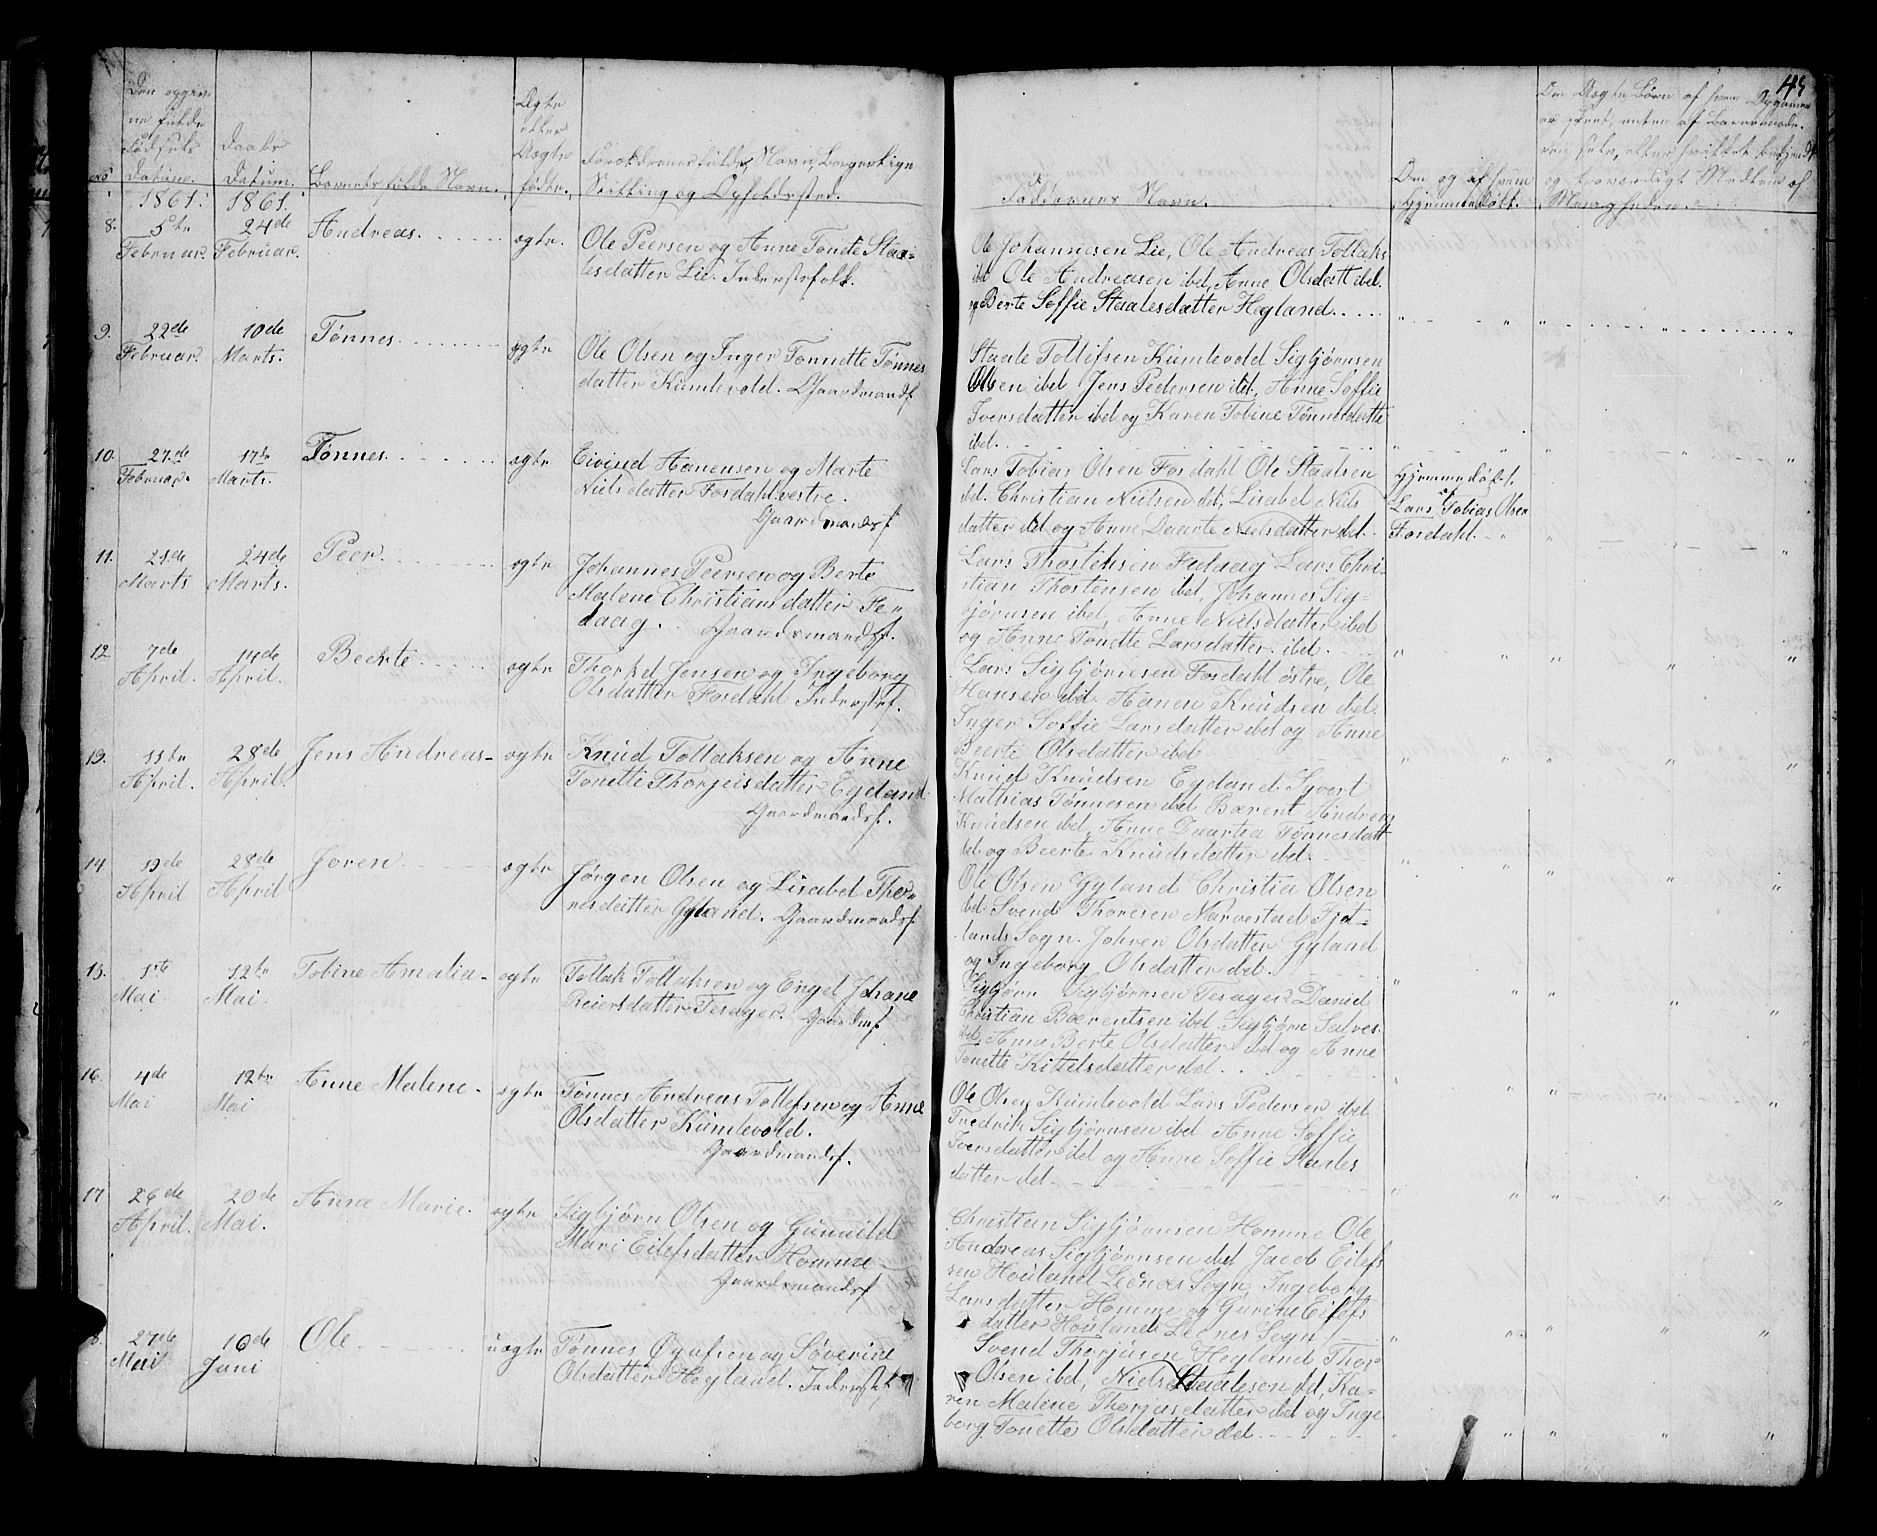 45
Den opgiv-
ne fulde
Fødsels
Datum.
Daabs
Datum.
Barnets fulde Navn.
Ægte
eller
Uægte
fødte.
Forældrenes fulde Navn, Borgerlige
Stilling og Opholdssted.
Faddernes Navn.
Om og af hvem
Hjemmedøbt.
Om Uægte Børn af hvem Opgaven
er skeet, enten af Barnemode-
ren selv, eller hvilket
og troværdigt Medlem af
Menigheden.
No
1861.
1861.
8.
5te
Februar.
24de
Februar.
Andreas.
ægte.
Ole Peersen og Anne Tonde Staa-
lesdatter Lie. Inderstefolk.
Ole Johannesen Lie, Ole Andreas Tollaks
ibd Ole Andreasen ibd, Anne Olsdatt ibd.
og Berte Soffie Staalesdatter Hegland.
9.
22de
Februar.
10de
Marts.
Tønnes.
ægte
Ole Olsen og Inger Tonnette Tønnes
datter Kumlevold. Gaardmandsf.
Staale Tollefsen Kumlevold Sigbjørnsen
Olsen ibd Jens Pedersen ibd, Anne Soffie
Iversdatter ibd og Karen Tobine Tønnesdatte
ibd.
10.
27de
Februar.
17de
Marts.
Tønnes.
ægte
Eivind Aanensen og Marte
Nielsdatter Fosdahl vestre.
Gaardmandsf
Lars Tobias Olsen Fosdahl Ole Staalsen
ibd. Christian Nielsen ibd, Lisabel Niels
datter ibd og Anne Daarte Nielsdatter ibd.
Hjemmedøbt.
af
Lars Tobias Olsen
Fosdahl.
11.
21de
Marts
24de
Marts.
Peer.
ægte
Johannes Peersen og Berte
Malene Christiansdatter Fe-
daag. Gaardsmandsf.
Lars Thostensen Fedaag Lars Chri-
stian Thostensen ibd, Johannes Sig-
bjørnsen ibd, Anne Nielsdatter ibd
og Anne Tonette Larsdatter ibd.
12
7de
April.
14de
April.
Beerte
ægte
Thorkel Jensen og Ingeborg
Olsdatter Fosdahl Inderstef.
Lars Sigbjørnesen Fosdahl østre, Ole
Hansen ibd. Aanen Knudsen ibd.
Inger Soffie Larsdatter ibd og Anne
Beerte Olsdatter ibd
13.
11te
April.
28de
April.
Jens Andreas
ægte
Knud Tollaksen og Anne
Tonette Thorjusdatter Egeland
Gaardmandsf.
Knud Knudsen Egeland Syvert
Mathias Tønnesen ibd Bærent Andreas
Knudsen ibd, Anne Daartea Tønnesdatt
ibd og Beerte Knudsdatter ibd.
14
19de
April
28de
April
Joren
ægte
Jørgen Olsen og Lisabel Thor-
resdatter Gyland. Gaardmandsf
Ole Olsen Gyland Christia Olsen
ibd Svend Thoresen Narvestad Fjot-
lands Sogn. Johren Olsdatter Gyland
og Ingeborg Olsdatter ibd.
15.
1te
Mai
12te
Mai.
Tobine Amalia
ægte
Tollak Tollaksen og Engel Johane
Reiersdatter Tesager. Gaardmf
Sigbjørn Sigbjørnsen Tesager Daniel
Christian Bærentsen ibd. Sigbjørn Salves
ibd, Anne Berte Olsdatter ibd og Anne
Tonette Kittelsdatter ibd.
16.
4de
Mai
12te
Mai
Anne Malene
ægte
Tønnes Andreas Tollefsen og Anne
Olsdatter Kumlevold.
Gaardmandsf.
Ole Olsen Kumlevold Lars Pedersen ibd
Fredrik Sigbjørnsen ibd Anne Soffie
Iversdatter ibd og Anne Soffie Staales
datter ibd
17
26de
April.
20de
Mai.
Anne Marie.
ægte
Sigbjørn Olsen og Gunnild
Mari Eilefsdatter Homme
Gaardsmandsf
Christian Sigbjørnsen Homme Ole
Andreas Sigbjørnsen ibd Jacob Eilefs
sen Houland Leenes Sogn, Ingeborg
Larsdatter Homme og Gurine Eilefs
datter Houland Leenes Sogn
8.
27de
Mai
16de
Juni
Ole
uægte
Tønnes Øyufsen og Søverine
Olsdatter Hegland. Inderstef
Svend Thorjusen Hegland Thor
Olsen ibd, Niels Staalesen ibd, Ka-
ren Malene Thorjusdatter ibd og Inge
borg Tonette Olsdatter ibd